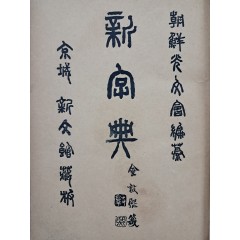 朝鮮光文會編纂
新字典
金敦熙篆
京城 新文館藏板